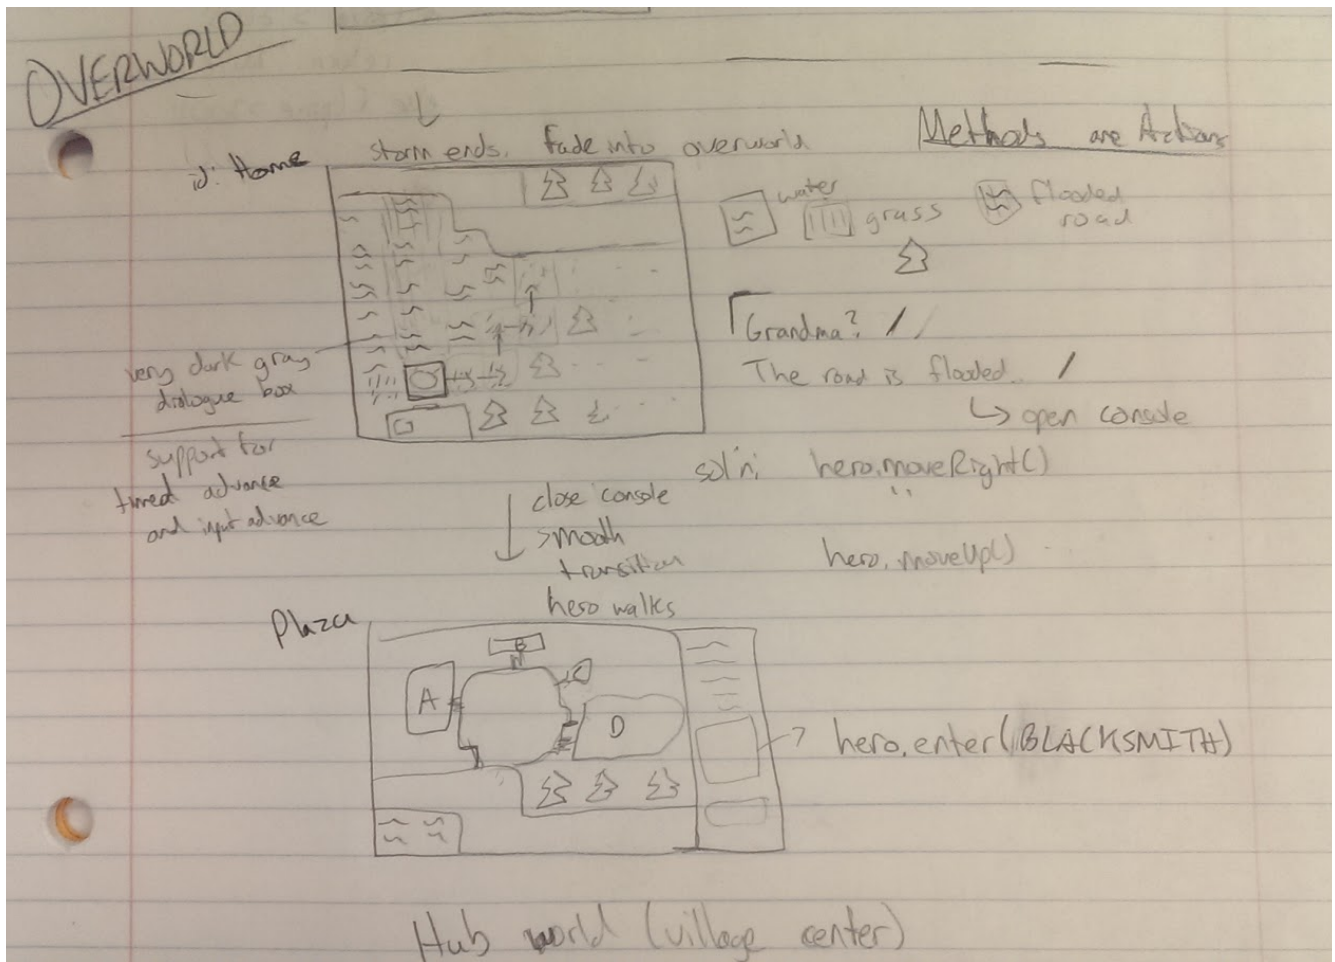 OVERWORLD
id: Home
storm ends. fade into overworld
Methods are Actions
water
grass
flooded
road
Grandma? /
The road is flooded. /
↳ open console
very dark gray
dialogue box
support for
timed advance
and input advance
sol'n: hero.moveRight()
" 
hero.moveUp()
close console
smooth
transition
hero walks
Plaza
A
B
C
D
hero.enter(BLACKSMITH)
Hub world (village center)